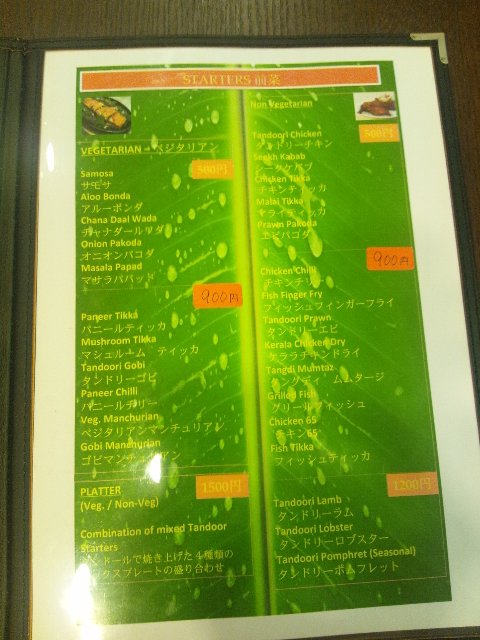 STARTERS 前菜
VEGETARIAN ベジタリアン
500円
Samosa
サモサ
Aloo Bonda
アルーボンダ
Chana Daal Wada
チャナダールワダ
Onion Pakoda
オニオンパコダ
Masala Papad
マサラパパッド
900円
Paneer Tikka
パニールティッカ
Mushroom Tikka
マシュルーム ティッカ
Tandoori Gobi
タンドリーゴビ
Paneer Chilli
パニールチリー
Veg. Manchurian
ベジタリアンマンチュリアン
Gobi Manchurian
ゴビマンチュリアン
PLATTER
(Veg. / Non-Veg)
1500円
Combination of mixed Tandoor
Starters
タンドールで焼き上げた4種類の
ックスプレートの盛り合わせ
Non Vegetarian
500円
Tandoori Chicken
タンドリーチキン
Seekh Kabab
シークケバブ
Chicken Tikka
チキンティッカ
Malai Tikka
マライティッカ
Prawn Pakoda
エビパコダ
900円
Chicken Chilli
チキンチリー
Fish Finger Fry
フィッシュフィンガーフライ
Tandoori Prawn
タンドリーエビ
Kerala Chicken Dry
ケララチキンドライ
Tangdi Mumtaz
タングディ ムムタージ
Grilled Fish
グリールフィッシュ
Chicken 65
チキン65
Fish Tikka
フィッシュティッカ
1200円
Tandoori Lamb
タンドリーラム
Tandoori Lobster
タンドリーロブスター
Tandoori Pomphret (Seasonal)
タンドリーポムフレット